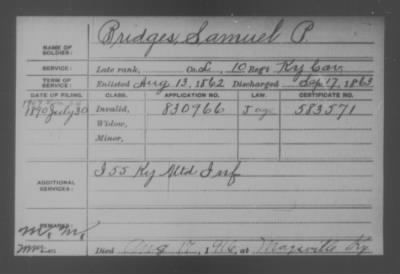 Bridges, Samuel P.
NAME OF SOLDIER:
SERVICE: Late rank, Co. L, 10 Reg't Ky Cav.
TERM OF SERVICE: Enlisted Aug 13, 1862 Discharged Sep 17, 1863
DATE OF FILING. CLASS. APPLICATION NO. LAW. CERTIFICATE NO.
1890 July 30 Invalid, 830966 J 583571
Widow,
Minor,
ADDITIONAL SERVICES: I 55 Ky Mtd Inf
REMARKS:
Died Aug 17, 191 at Maysville Ky